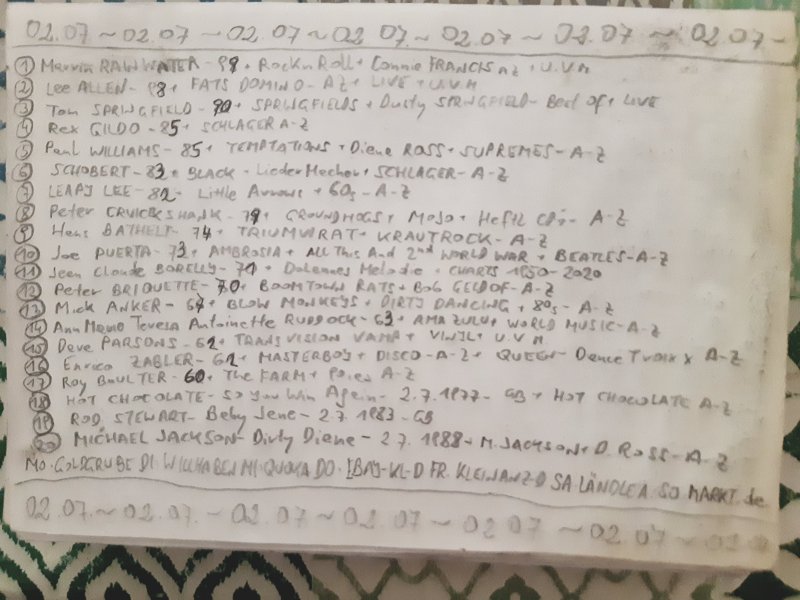 02.07 ~ 02.07 ~ 02.07 ~ 02.07 ~ 02.07 ~ 02.07 ~ 02.07 ~
① Marvin RAINWATER - 98 + Rock n Roll + Connie FRANCIS AZ + U.V.M
② Lee ALLEN - 98 + FATS DOMINO - AZ + LIVE + U.V.M
③ Tom SPRINGFIELD - 90 + SPRINGFIELDS + Dusty SPRINGFIELD - Best Of + LIVE
④ Rex GILDO - 85 + SCHLAGER A-Z
⑤ Paul WILLIAMS - 85 + TEMPTATIONS + Diana ROSS + SUPREMES - A-Z
⑥ SCHOBERT - 83 + BLACK - Lieder Macher + SCHLAGER - A-Z
⑦ LEAPY LEE - 82 - Little Arrows + 60s - A-Z
⑧ Peter CRUICKSHANK - 79 + GROUNDHOGS + MOJO + Heft CDs - A-Z
⑨ Hans BATHELT - 74 + TRIUMVIRAT + KRAUTROCK - A-Z
⑩ Joe PUERTA - 73 + AMBROSIA + All This And 2nd WORLD WAR + BEATLES - A-Z
⑪ Jean Claude BORELLY - 71 + Dolannes Melodie + CHARTS 1950-2020
⑫ Peter BRIQUETTE - 70 + BOOMTOWN RATS + Bob GELDOF - A-Z
⑬ Mick ANKER - 67 + BLOW MONKEYS + DIRTY DANCING + 80s - A-Z
⑭ Ann Marie Teresa Antoinette RUDDOCK - 63 + AMAZULU + WORLD MUSIC - A-Z
⑮ Dave PARSONS - 62 + TRANSVISION VAMP + VINYL + U.V.M
⑯ Enrico ZABLER - 61 + MASTERBOY + DISCO - A-Z + QUEEN - Dance Traxx A-Z
⑰ Roy BOULTER - 60 + The FARM + A-Z
⑱ HOT CHOCOLATE - So You Win Again - 2.7.1977 - GB + HOT CHOCOLATE A-Z
⑲ ROD STEWART - Baby Jane - 2.7.1983 - GB
⑳ MICHAEL JACKSON - Dirty Diana - 2.7.1988 + M. JACKSON + D. ROSS - A-Z
MO. GOLDGRUBE DI. WILLHABEN MI. QUOKA DO. [BAY-KL-D FR. KLEINANZ-D SA LÄNDLEA SO MARKT.de
02.07. ~ 02.07. ~ 02.07 ~ 02.07 ~ 02.07 ~ 02.07 ~ 02.02